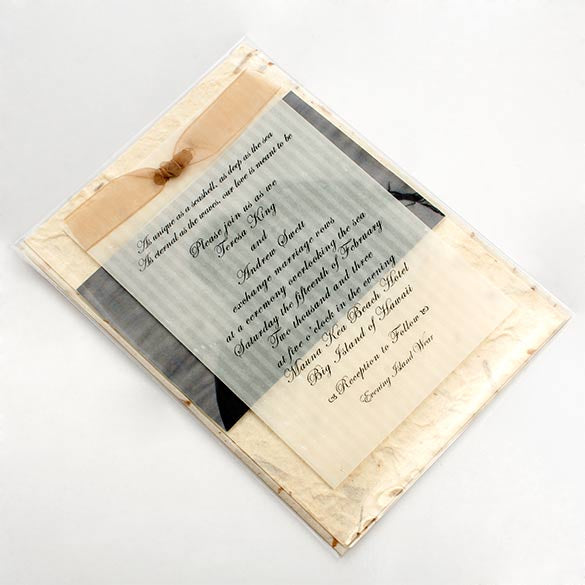 As unique as a seashell, as deep as the sea
As eternal as the waves, our love is meant to be
Please join us as we
Teresa King
and
Andrew Swett
exchange marriage vows
at a ceremony overlooking the sea
Saturday the fifteenth of February
Two thousand and three
at five o'clock in the evening
Mauna Kea Beach Hotel
Big Island of Hawaii
Reception to Follow
Evening Island Wear